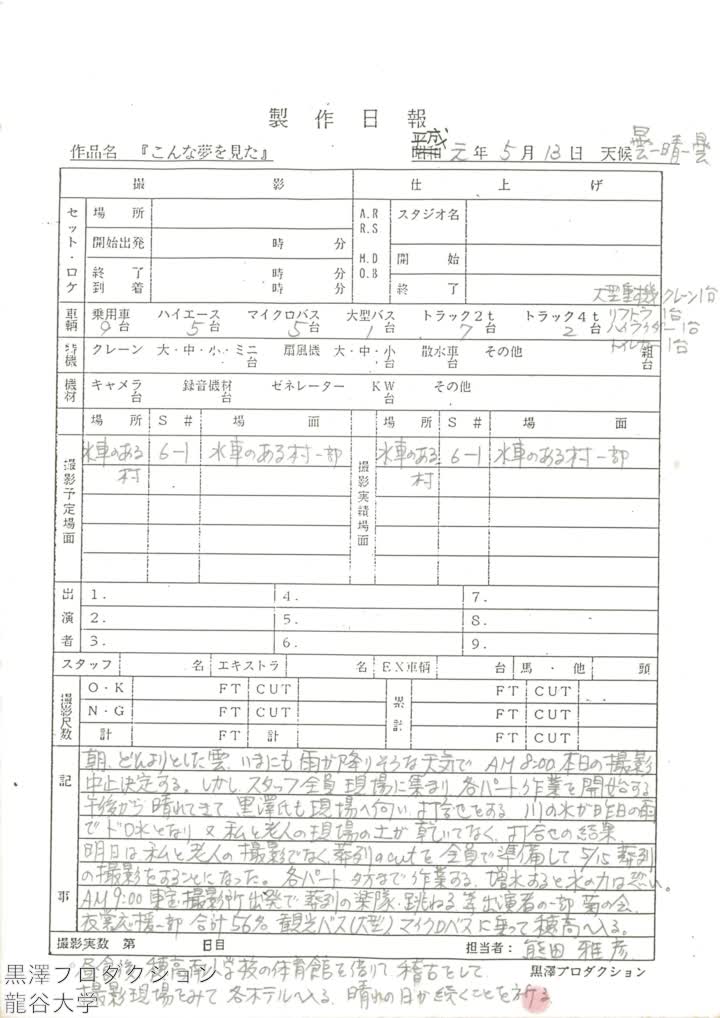 製作日報
作品名 『こんな夢を見た』 平成 元年 5月 13日 天候 曇-晴-曇
撮影 仕上げ
セット・ロケ 場所 A.R R.S スタジオ名
開始出発 時 分 M.D O.B 開始
終了到着 時 分 終了
大型重機クレーン1台
車輌 乗用車 ハイエース マイクロバス 大型バス トラック2t トラック4t リフトラ 1台
9台 5台 5台 1台 7台 2台 ハイライダー1台
特機 クレーン 大・中・小・ミニ 扇風機 大・中・小 散水車 その他 トイレカー1台
台 台 台 組台
機材 キャメラ 録音機材 ゼネレーター KW その他
台 台 台
場所 S# 場面 場所 S# 場面
撮影予定場面 水車のある村 6-1 水車のある村一部 撮影実績場面 水車のある村 6-1 水車のある村一部
出演者 1. 4. 7.
2. 5. 8.
3. 6. 9.
スタッフ 名 エキストラ 名 EX車輌 台 馬・他 頭
撮影尺数 O・K FT CUT 累計 FT CUT
N・G FT CUT FT CUT
計 FT 計 FT CUT
記事
朝、どんよりとした雲、いまにも雨が降りそうな天気で AM8:00 本日の撮影
中止決定する。しかし、スタッフ全員現場に集まり、各パート作業を開始する
午後から晴れてきて、黒澤氏も現場へ向い、打合せをする 川の水が昨日の雨
でドロ水となり 又 私と老人の現場の土が乾いてなく、打合せの結果、
明日は私と老人の撮影でなく葬列のcutを全員で準備して 5/15 葬列
の撮影をすることになった。各パート夕方まで作業する、増水すると水の力は恐い。
AM9:00 東宝撮影所出発で葬列の楽隊・跳ねる等出演者の一部 菊の会、
衣裳応援一部 合計56名 観光バス(大型)マイクロバスに乗って穂高へ入る。
撮影実数 第 日目 担当者: 熊田雅彦
昼食後、穂高南小学校の体育館を借りて稽古をして、 黒澤プロダクション
撮影現場をみて各ホテルへ入る、晴れの日が続くことを祈る
黒澤プロダクション
龍谷大学